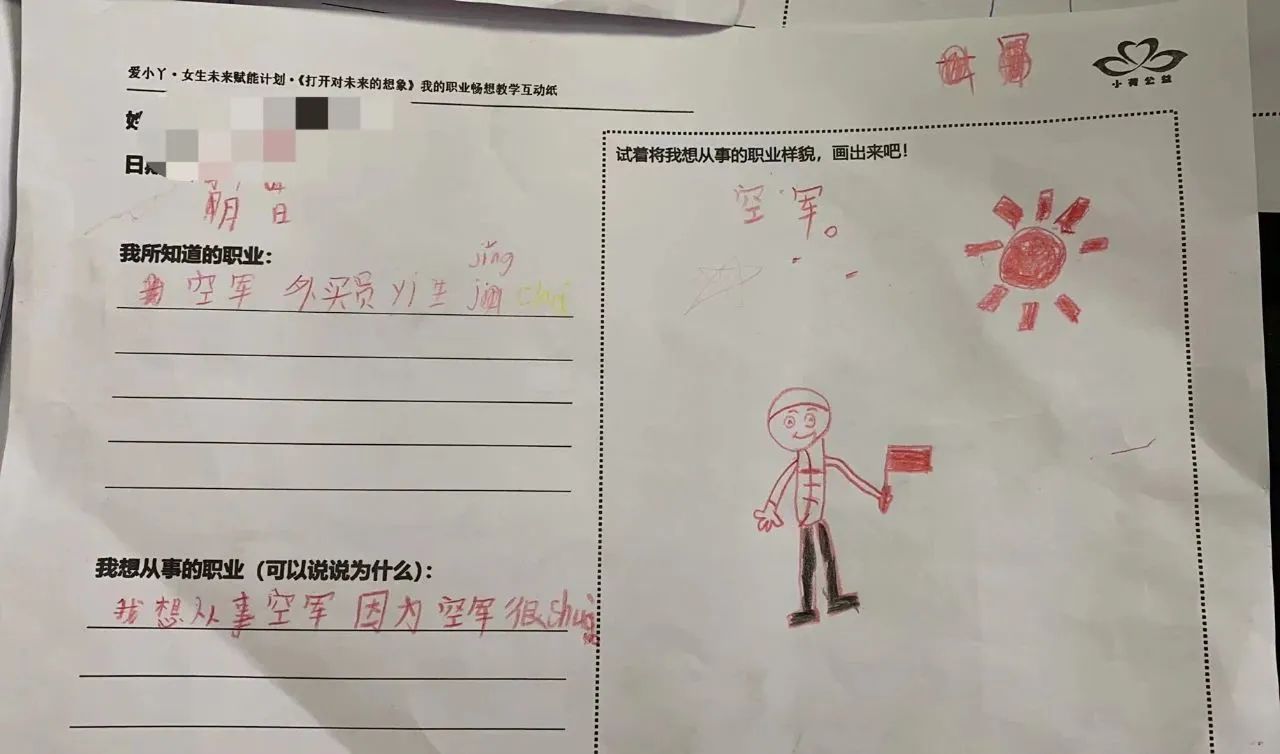 爱小丫·女生未来赋能计划·《打开对未来的想象》我的职业畅想教学互动纸
小荷公益
日
我所知道的职业：
jǐng
空军 外买员 yi 生 chá
我想从事的职业（可以说说为什么）：
我想从事空军 因为 空军很shuai
试着将我想从事的职业样貌，画出来吧！
空军。